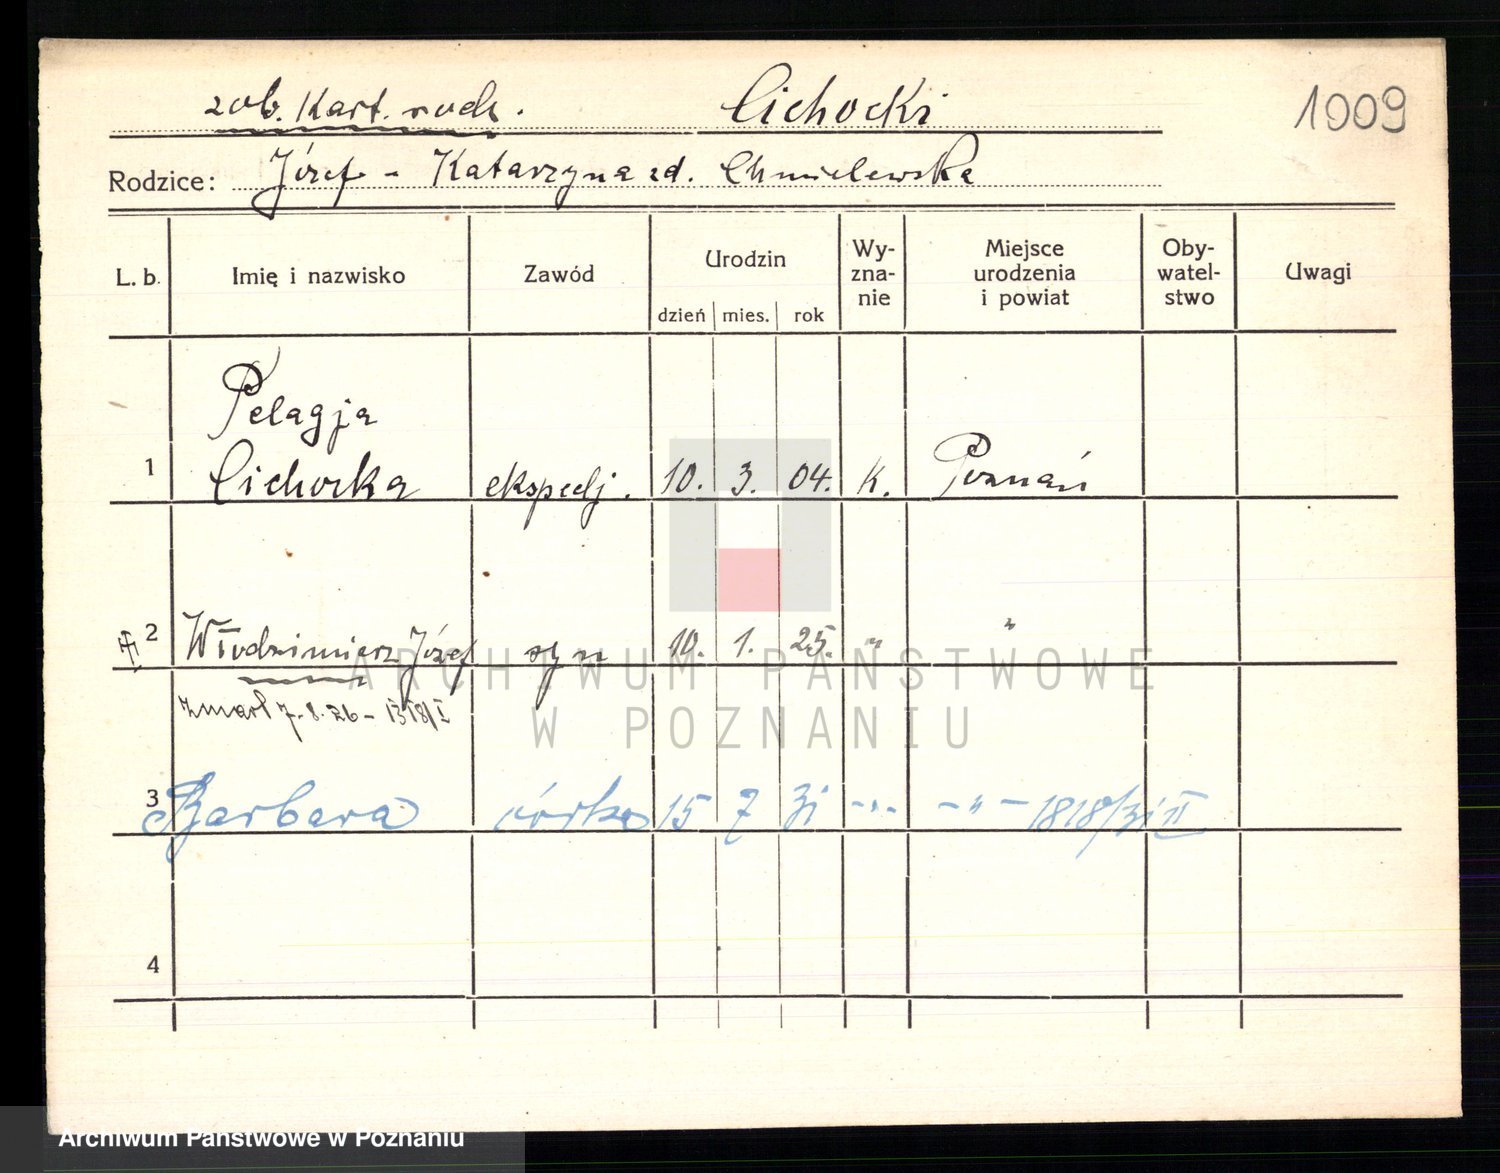 zob. Kart. rodz. Cichocki 1909
Rodzice: Józef - Katarzyna zd. Chmielewska
L. b. Imię i nazwisko Zawód Urodzin dzień mies. rok Wy-zna-nie Miejsce urodzenia i powiat Oby-watel-stwo Uwagi
Pelagja
1 Cichocka ekspedj. 10. 3. 04. K. Poznań
2 Włodzimierz Józef syn 10. 1. 25. " "
zmarł 7.8.26 -
3 Barbara córka 15 7 31 -"- -"- 1818/31 II
4
ARCHIWUM PAŃSTWOWE
W POZNANIU
Archiwum Państwowe w Poznaniu